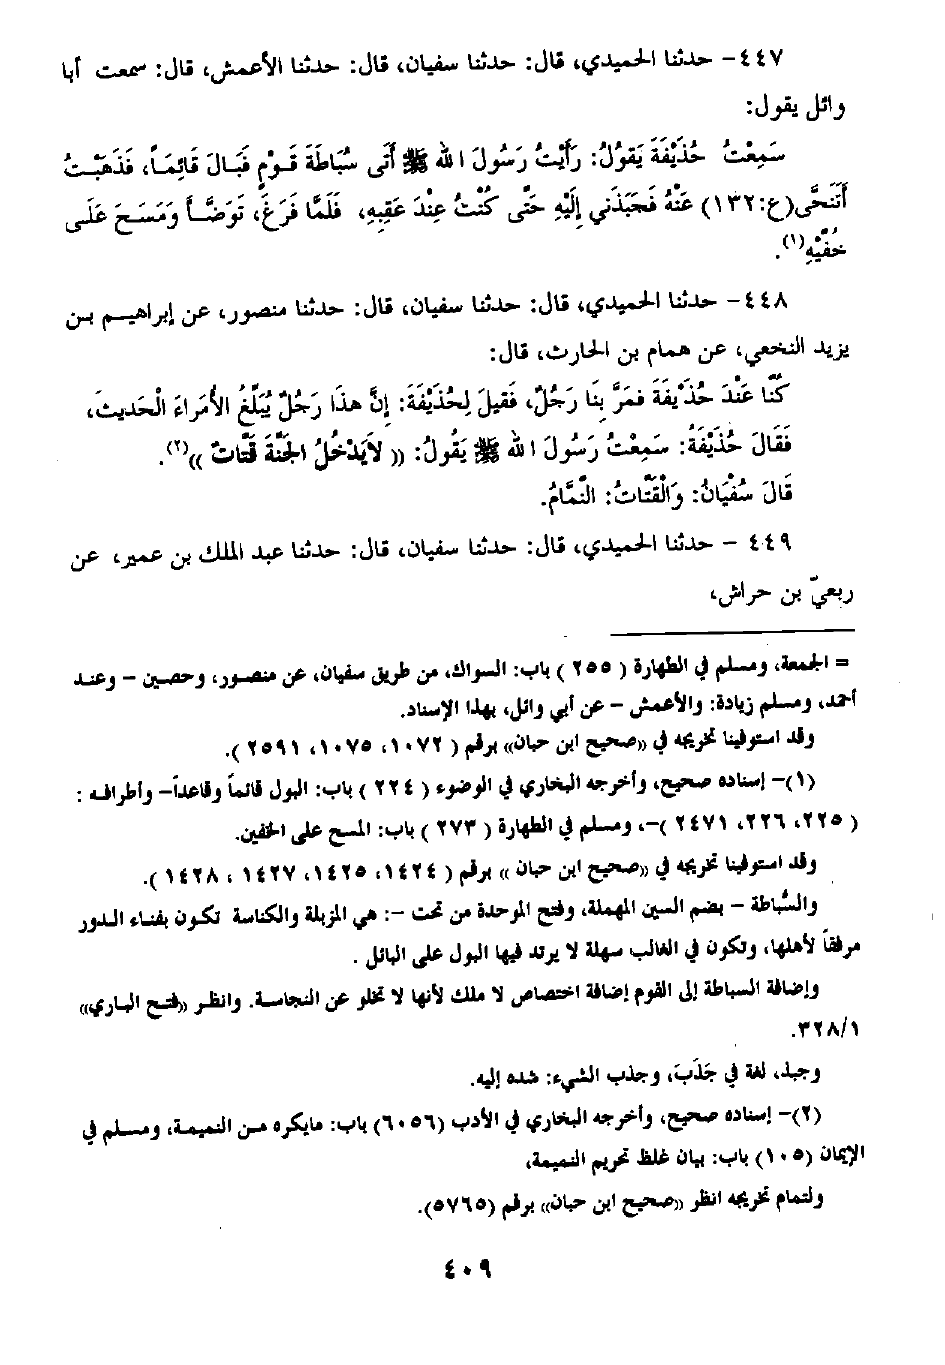 ٤٤٧- حدثنا الحميدي، قال: حدثنا سفيان، قال: حدثنا الأعمش، قال: سمعت أبا
وائل يقول:
سَمِعْتُ حُذَيْفَةَ يَقُولُ: رَأَيْتُ رَسُولَ اللهِ ﷺ أَتَى سُبَاطَةَ قَوْمٍ فَبَالَ قَائِمَاً، فَذَهَبْتُ
أَتَنَحَّى(ع:١٣٢) عَنْهُ فَجَبَذَنِي إِلَيْهِ حَتَّى كُنْتُ عِنْدَ عَقِبِهِ، فَلَمَّا فَرَغَ، تَوَضَّأَ وَمَسَحَ عَلَى
خُفَّيْهِ(١).
٤٤٨- حدثنا الحميدي، قال: حدثنا سفيان، قال: حدثنا منصور، عن إبراهيم بن
يزيد النخعي، عن همام بن الحارث، قال:
كُنَّا عِنْدَ حُذَيْفَةَ فَمَرَّ بِنَا رَجُلٌ، فَقِيلَ لِحُذَيْفَةَ: إِنَّ هذَا رَجُلٌ يُبَلِّغُ الأُمَرَاءَ الْحَدِيثَ،
فَقَالَ حُذَيْفَةُ: سَمِعْتُ رَسُولَ اللهِ ﷺ يَقُولُ: (( لاَيَدْخُلُ الجَنَّةَ قَتَّاتٌ ))(٢).
قَالَ سُفْيَانُ: وَالْقَتَّاتُ: النَّمَّامُ.
٤٤٩ - حدثنا الحميدي، قال: حدثنا سفيان، قال: حدثنا عبد الملك بن عمير، عن
ربعيّ بن حراش،
= الجمعة، ومسلم في الطهارة ( ٢٥٥ ) باب: السواك، من طريق سفيان، عن منصور، وحصين - وعند
أحمد، ومسلم زيادة: والأعمش - عن أبي وائل، بهذا الإسناد.
وقد استوفينا تخريجه في ((صحيح ابن حبان)) برقم ( ١٠٧٢، ١٠٧٥، ٢٥٩١ ).
(١)- إسناده صحيح، وأخرجه البخاري في الوضوء ( ٢٢٤ ) باب: البول قائماً وقاعداً- وأطرافه :
( ٢٢٥، ٢٢٦، ٢٤٧١ )-، ومسلم في الطهارة ( ٢٧٣ ) باب: المسح على الخفين.
وقد استوفينا تخريجه في ((صحيح ابن حبان )) برقم ( ١٤٢٤، ١٤٢٥، ١٤٢٧ ، ١٤٢٨ ).
والسُّباطة - بضم السين المهملة، وفتح الموحدة من تحت -: هي المزبلة والكناسة تكون بفناء الدور
مرفقاً لأهلها، وتكون في الغالب سهلة لا يرتد فيها البول على البائل .
وإضافة السباطة إلى القوم إضافة اختصاص لا ملك لأنها لا تخلو عن النجاسة. وانظر ((فتح الباري))
٣٢٨/١.
وجبذ، لغة في جَذَبَ، وجذب الشيء: شده إليه.
(٢)- إسناده صحيح، وأخرجه البخاري في الأدب (٦٠٥٦) باب: مايكره من النميمة، ومسلم في
الإيمان (١٠٥) باب: بيان غلظ تحريم النميمة،
ولتمام تخريجه انظر ((صحيح ابن حبان)) برقم (٥٧٦٥).
٤٠٩